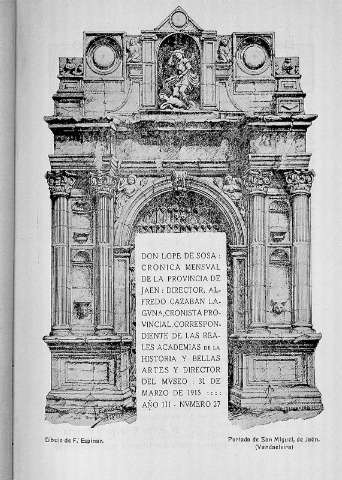 DON LOPE DE SOSA :
CRONICA MENSVAL
DE LA PROVINCIA DE
JAEN : DIRECTOR, AL-
FREDO CAZABAN LA-
GVNA, CRONISTA PRO-
VINCIAL, CORRESPON-
DIENTE DE LAS REA-
LES ACADEMIAS DE LA
HISTORIA Y BELLAS
ARTES Y DIRECTOR
DEL MVSEO : 31 DE
MARZO DE 1915 ::::
AÑO III - NVMERO 27
Dibujo de F. Espinar.
Portada de San Miguel, de Jaén.
(Vandaelvira)